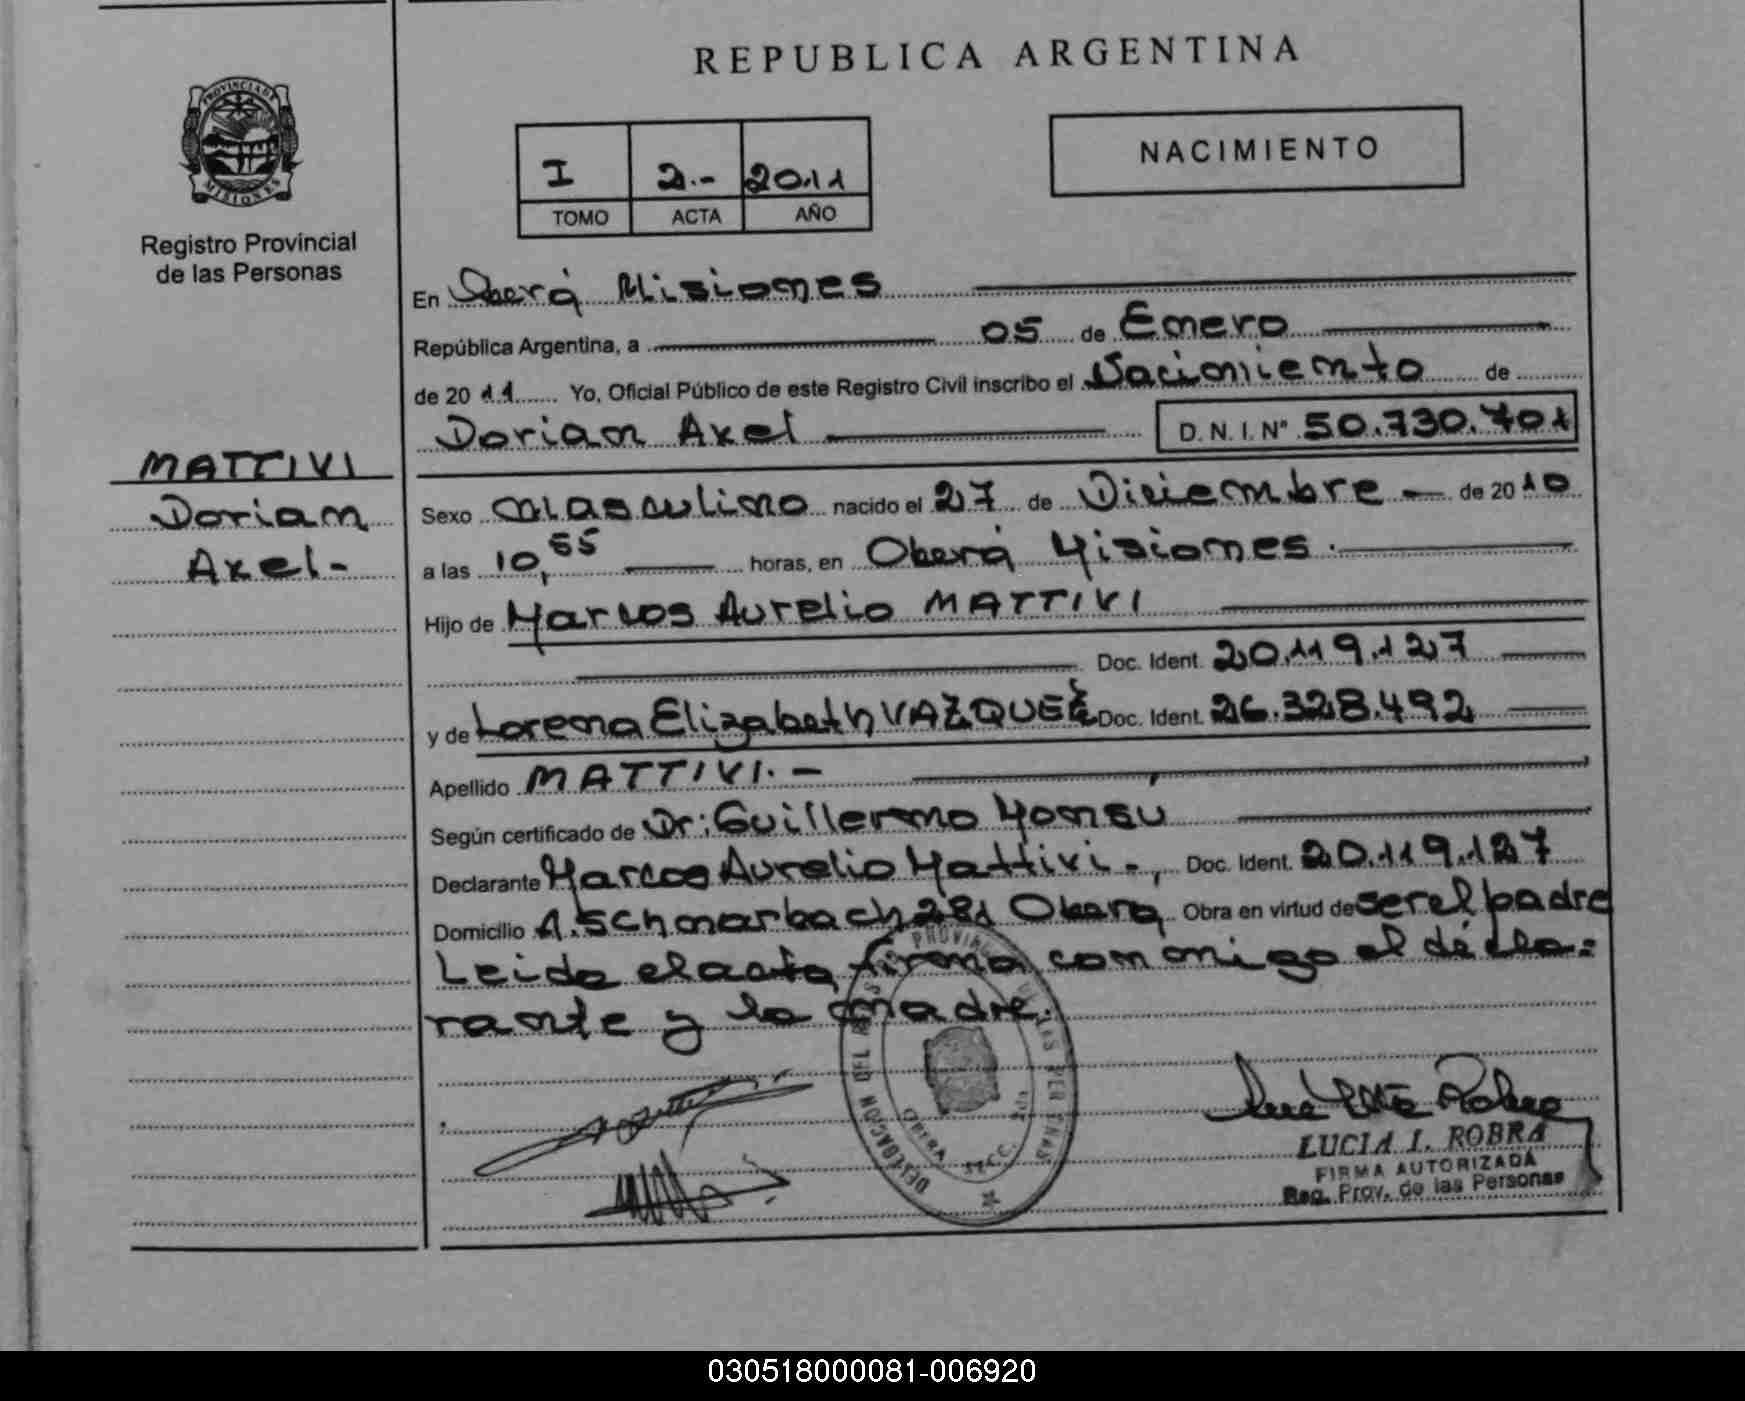 REPUBLICA ARGENTINA
PROVINCIA DE
MISIONES
Registro Provincial
de las Personas
NACIMIENTO
I 2.- 2011
TOMO ACTA AÑO
En Oberá Misiones
República Argentina, a 05 de Enero
de 2011 Yo, Oficial Público de este Registro Civil inscribo el Nacimiento de
Dorian Axel D. N. I. Nº 50.730.701
MATTIVI
Dorian
Axel-
Sexo Masculino nacido el 27 de Diciembre - de 2010
a las 10,55 horas, en Oberá Misiones.
Hijo de Marcos Aurelio MATTIVI
Doc. Ident. 20.119.127
y de Lorena Elizabeth VAZQUEZ Doc. Ident. 26.328.492
Apellido MATTIVI.-
Según certificado de Dr: Guillermo
Declarante Marcos Aurelio Mattivi.-, Doc. Ident. 20.119.127
Domicilio A. Schmarbach 281 Oberá Obra en virtud de ser el padre
Leida el acta firma conmigo el decla=
rante y la madre.
LUCIA I. ROBRA
FIRMA AUTORIZADA
Reg. Prov. de las Personas
030518000081-006920